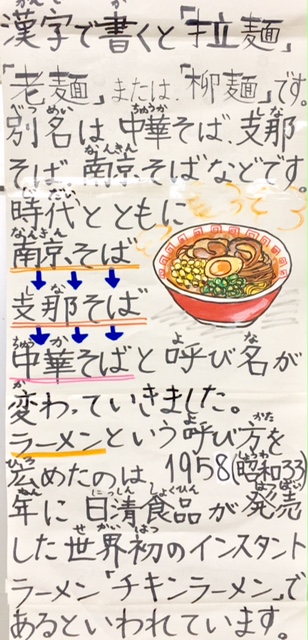 漢字で書くと「拉麺」
「老麺」または、「柳麺」です。
別名は、中華そば、支那
そば、南京そばなどです
時代とともに
南京そば
支那そば
中華そばと呼び名が
変わっていきました。
ラーメンという呼び方を
広めたのは、1958(昭和33)
年に日清食品が発売
した世界初のインスタント
ラーメン「チキンラーメン」で
あるといわれています。